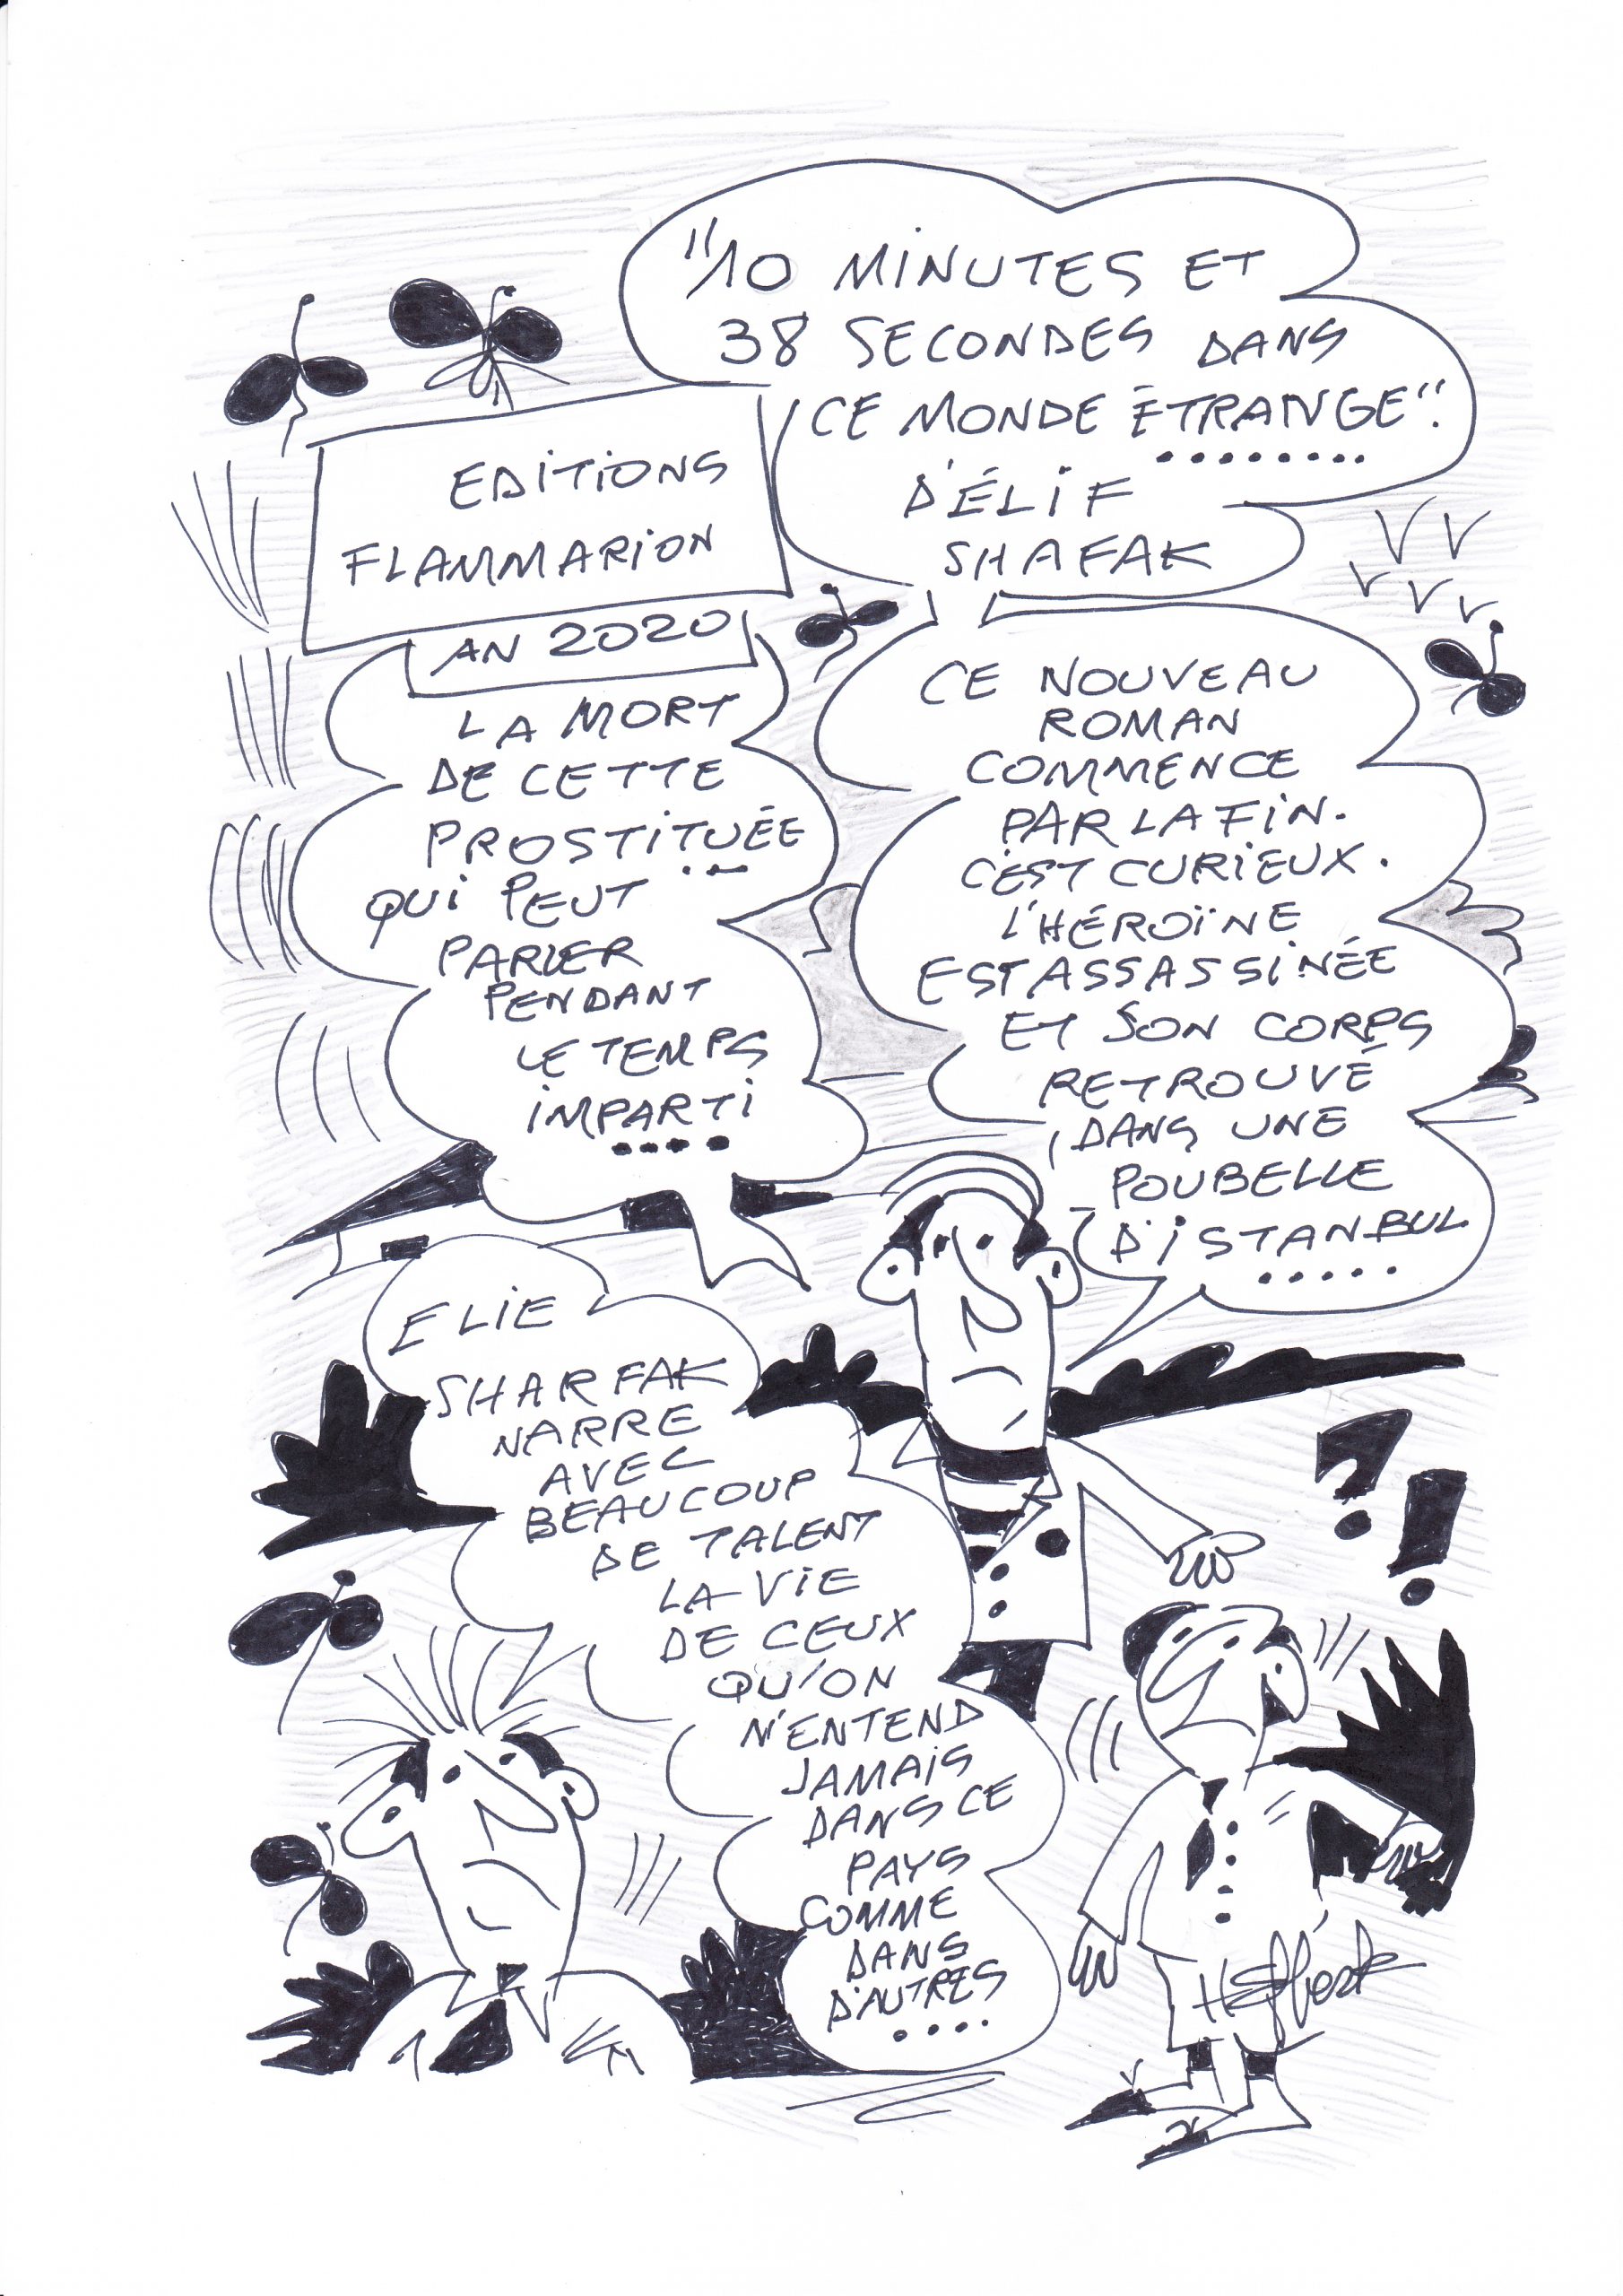 "10 MINUTES ET
38 SECONDES DANS
CE MONDE ÉTRANGE".
........
D'ÉLIF
SHAFAK
EDITIONS
FLAMMARION
AN 2020
CE NOUVEAU
ROMAN
COMMENCE
PAR LA FIN.
C'EST CURIEUX.
L'HÉROÏNE
EST ASSASSINÉE
ET SON CORPS
RETROUVÉ
DANS UNE
POUBELLE
D'ISTANBUL
.....
LA MORT
DE CETTE
PROSTITUÉE
QUI PEUT
PARLER
PENDANT
LE TEMPS
IMPARTI
....
ELIE
SHARFAK
NARRE
AVEC
BEAUCOUP
DE TALENT
LA VIE
DE CEUX
QU'ON
N'ENTEND
JAMAIS
DANS CE
PAYS
COMME
DANS
D'AUTRES
....
?!